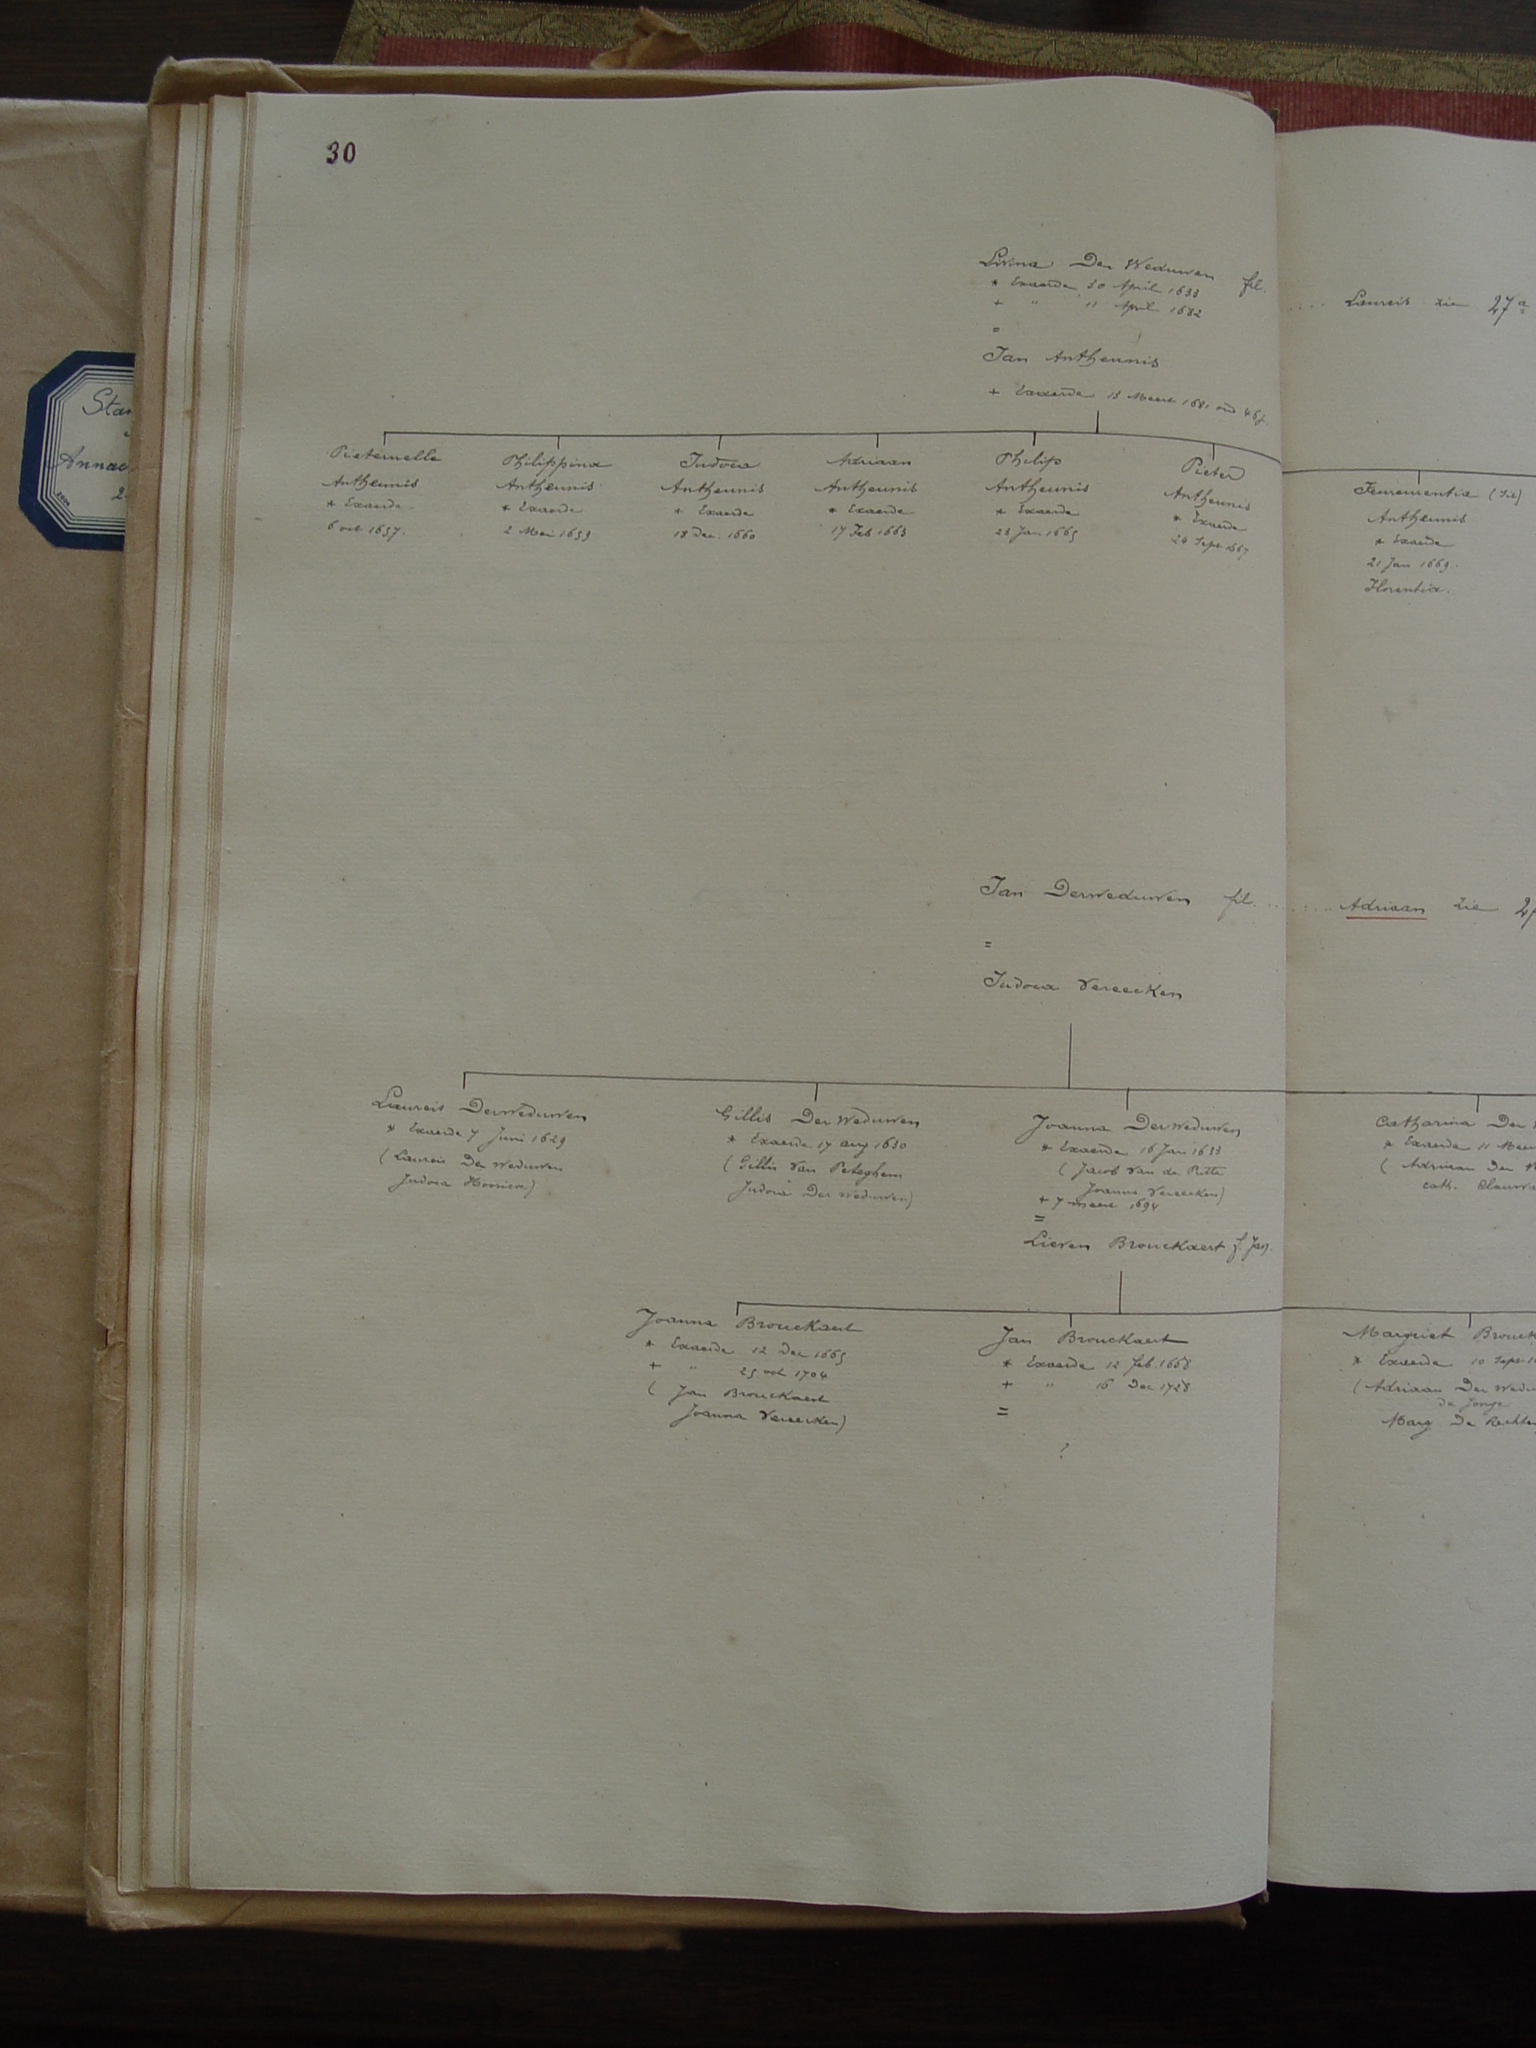 30
Livina Der Weduwen fil. .... Laureis zie 27a
* Exaerde 30 April 1633
+ " 11 April 1682
=
Jan Antheunis
+ Exaerde 13 Meert 1681 oud 46j
Pieternelle
Antheunis
* Exaerde
6 oct 1657.
Philippina
Antheunis
* Exaerde
2 Mei 1659
Judoca
Antheunis
* Exaerde
18 Dec. 1660
Adriaan
Antheunis
* Exaerde
17 Feb 1663
Philip
Antheunis
* Exaerde
23 Jan 1665
Pieter
Antheunis
* Exaerde
24 Sept 1667
(Sic)
Antheunis
* Exaerde
21 Jan 1669.
Florentia.
Jan Derweduwen fil. ........ Adriaan zie
=
Judoca Vereecken
Laureis Derweduwen
* Exaerde 7 Juni 1629
(Laureis Der Weduwen
Judoca
Gillis Der Weduwen
* Exaerde 17 aug 1630
(Gillis Van Peteghem
Judoca Der Weduwen)
Joanna Derweduwen
* Exaerde 16 Jan 1633
(Jacob Van de Putte
Joanna Vereecken)
+ 7 meert 1694
=
Lieven Brouckaert f. Jan
Catharina Der
* Exaerde 11 Meer
(Adriaan Der
Cath.
Joanna Brouckaert
* Exaerde 12 Dec 1665
+ " 25 oct 1704
(Jan Brouckaert
Joanna Vereecken)
Jan Brouckaert
* Exaerde 12 feb. 1668
+ " 16 Dec 1728
=
?
Margriet Brouck
* Exaerde 10 Sept
(Adriaan Der Wedu
de Jonge
Marg De
Sta
Annae